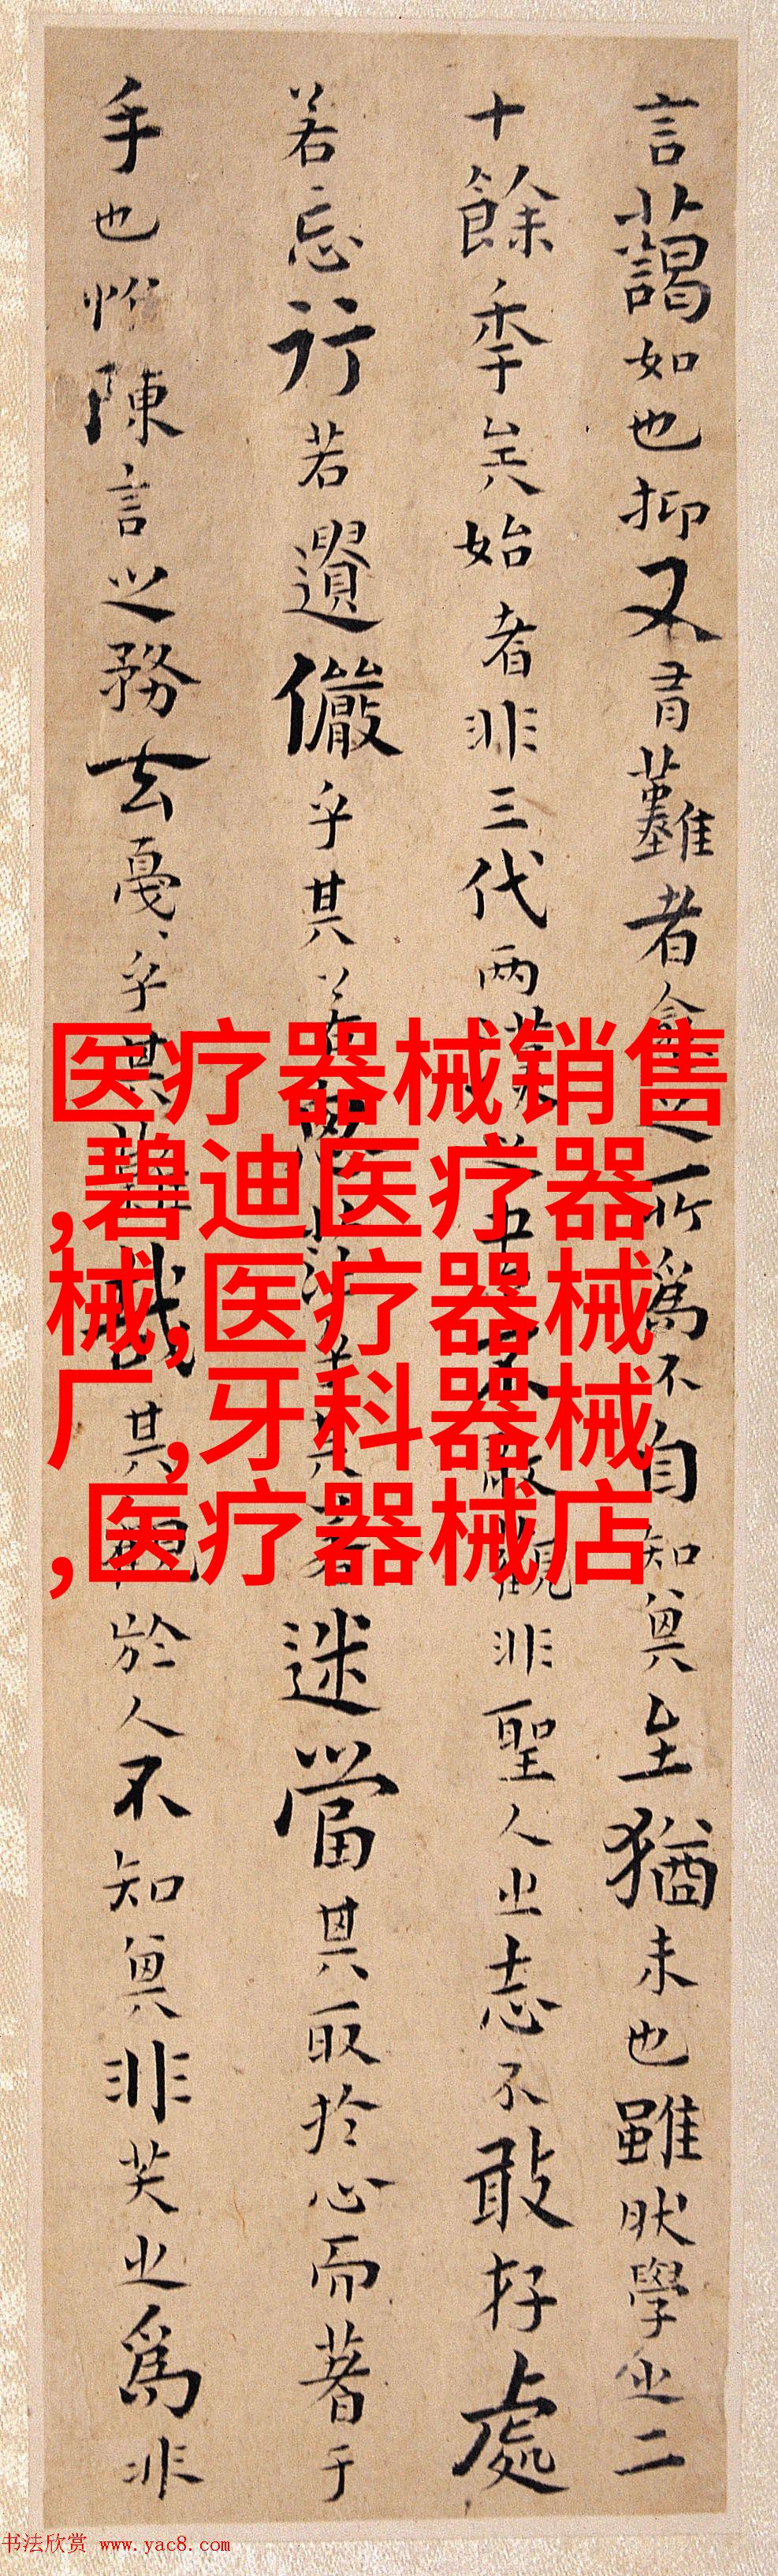 言藹如也抑又有難者愈之所爲不自知其至猶未也雖然學之二
十餘季矣始者非三代两漢之不敢觀非聖人之志不敢存處
若忘行若遺儼乎其若思茫乎其若迷當其取於心而著于
手也惟陳言之務去戛、乎其難哉其觀於人不知其非笑之爲非
医疗器械销售
,碧迪医疗器
械,医疗器械
厂,牙科器械
,医疗器械店
书法欣赏 www.yac8.com